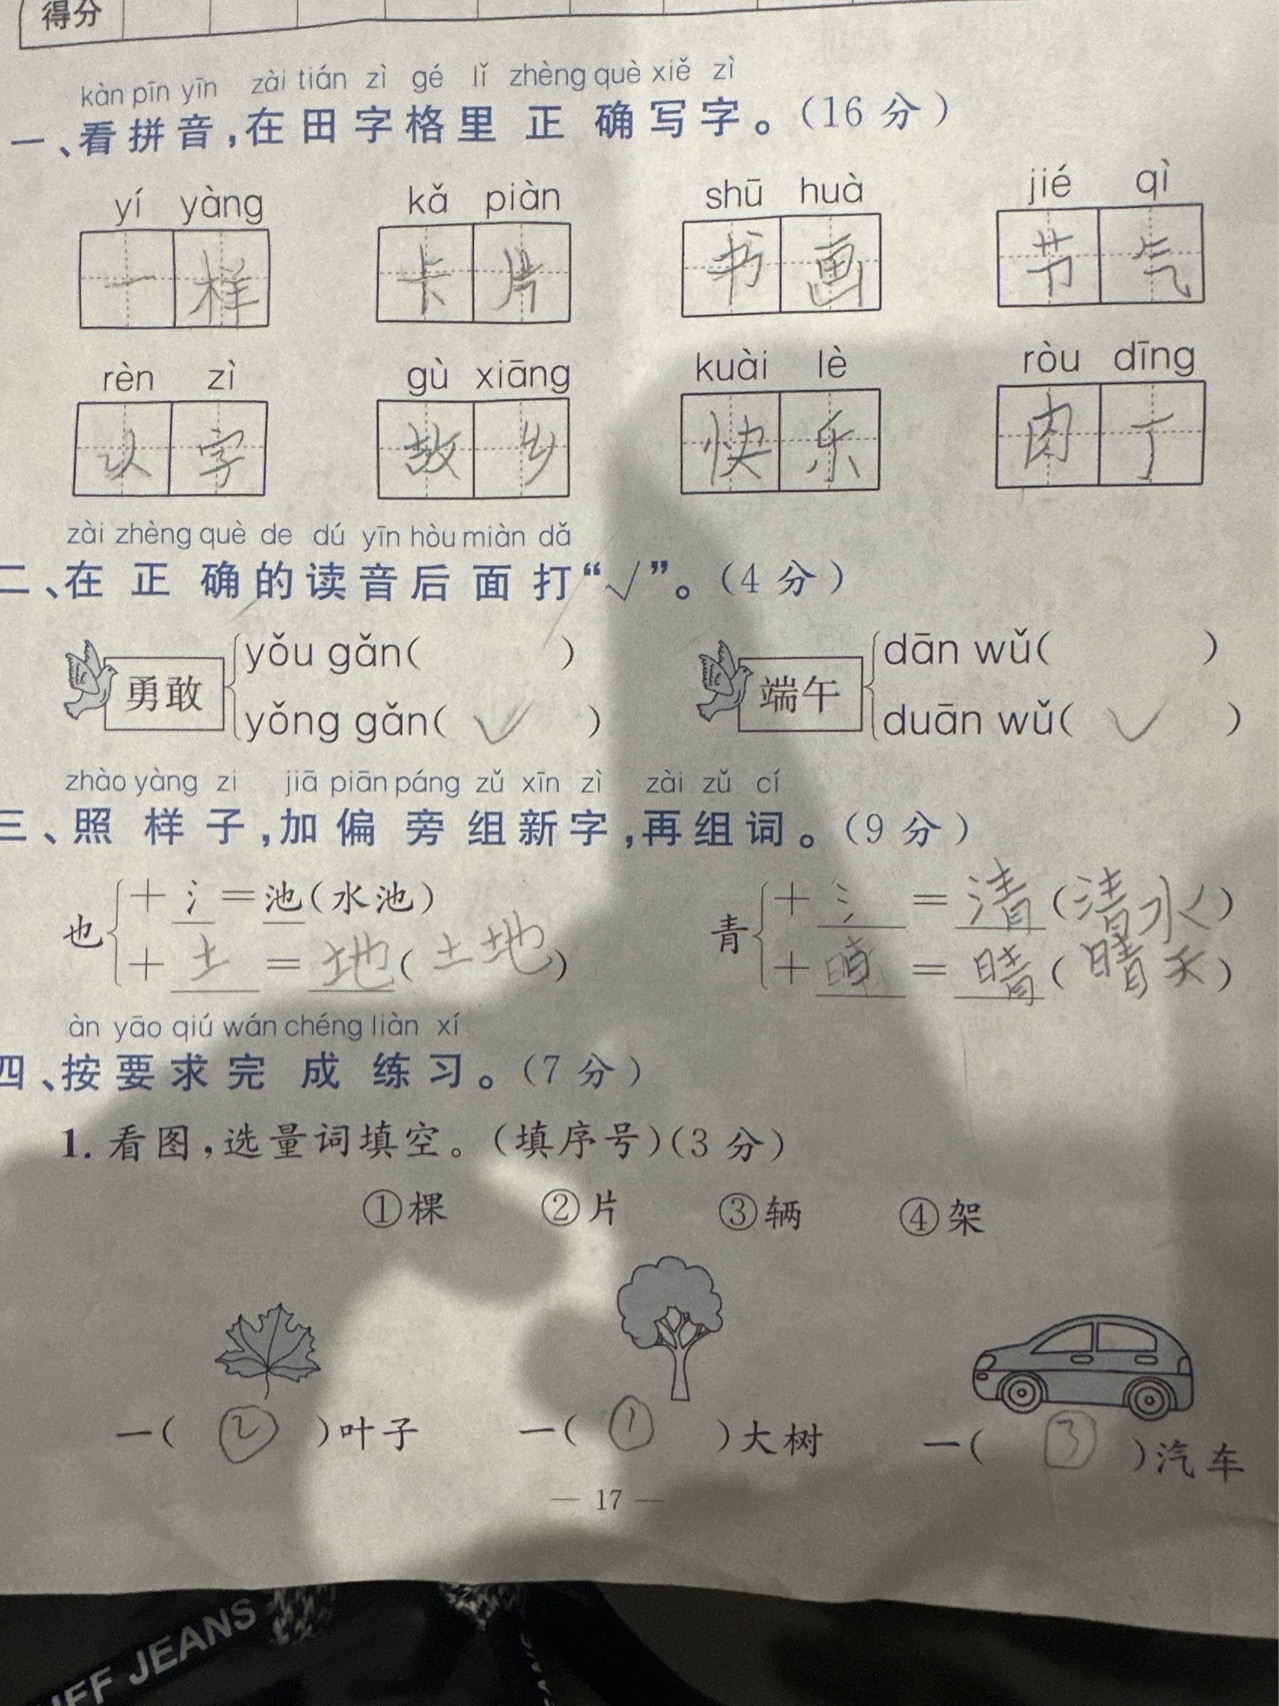 得分
kàn pīn yīn zài tián zì gé lǐ zhèng què xiě zì
一、看拼音,在田字格里正确写字。(16分)
yí yàng kǎ piàn shū huà jié qì
一样 卡片 书画 节气
rèn zì gù xiāng kuài lè ròu dīng
认字 故乡 快乐 肉丁
zài zhèng què de dú yīn hòu miàn dǎ
二、在正确的读音后面打“√”。(4分)
yǒu gǎn( ) dān wǔ( )
勇敢 端午
yǒng gǎn( √ ) duān wǔ( √ )
zhào yàng zi jiā piān páng zǔ xīn zì zài zǔ cí
三、照样子,加偏旁组新字,再组词。(9分)
+氵=池(水池) +氵=清(清水)
也 青
+土=地(土地) +=晴(晴天)
àn yāo qiú wán chéng liàn xí
四、按要求完成练习。(7分)
1.看图,选量词填空。(填序号)(3分)
①棵 ②片 ③辆 ④架
一( ② )叶子 一( ① )大树 一( ③ )汽车
— 17 —
JEANS